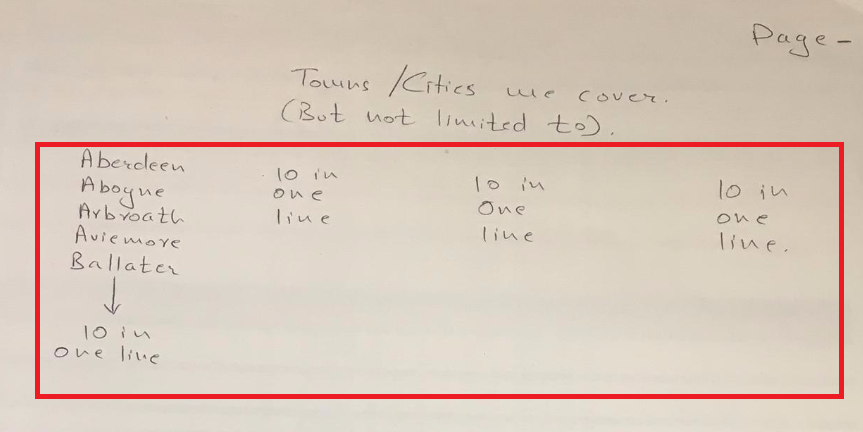 Page -
Towns / Cities we cover.
(But not limited to).
Aberdeen
Aboyne
Arbroath
Aviemore
Ballater
10 in
one line
10 in
one
line
10 in
One
line
10 in
one
line.